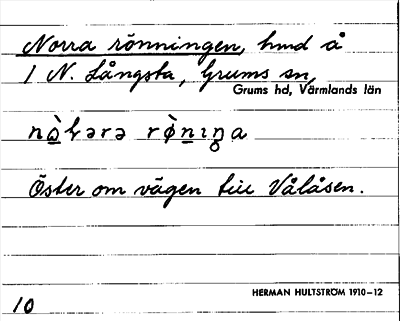 Norra rönningen, hmd å
1 N. Långsta, Grums sn,
Grums hd, Värmlands län
nò̱ɦərə rø̀ṉıŋa
Öster om vägen till Vålåsen.
HERMAN HULTSTRÖM 1910–12
10